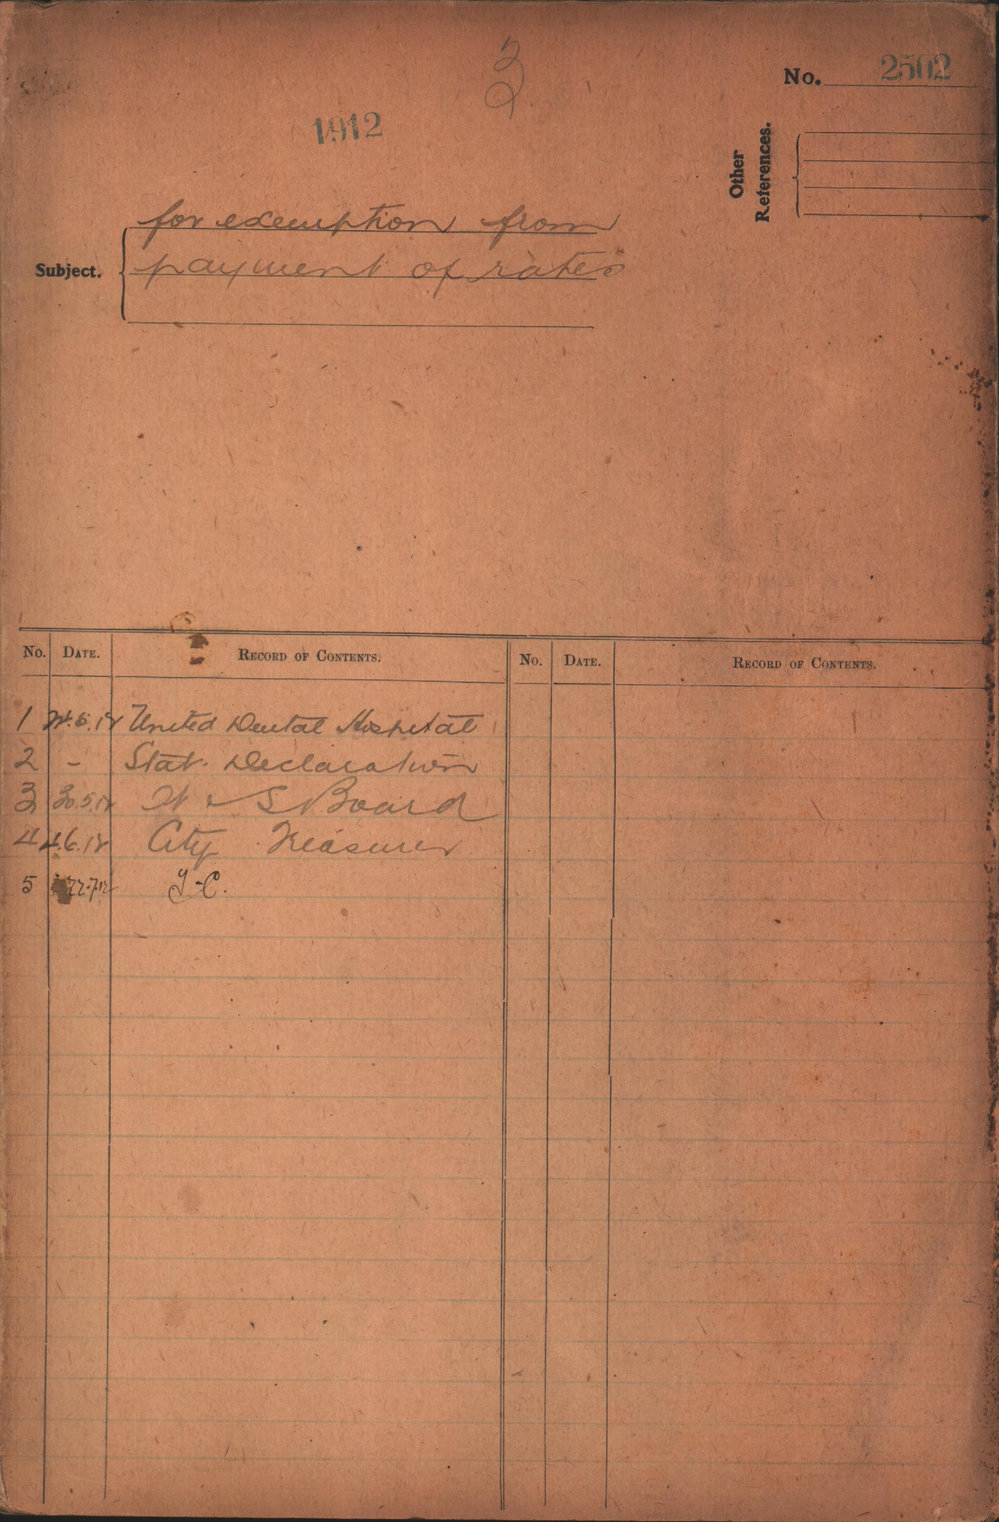 3
No. 2502
1912
Other
References.
for exemption from
Subject. payment of rates
No. DATE. RECORD OF CONTENTS. No. DATE. RECORD OF CONTENTS.
1 24.5.12 United Dental Hospital
2 - Stat. Declaration
3 30.5.12 W & S Board
4 4.6.12 City Treasurer
5 22.7.12 T.C.